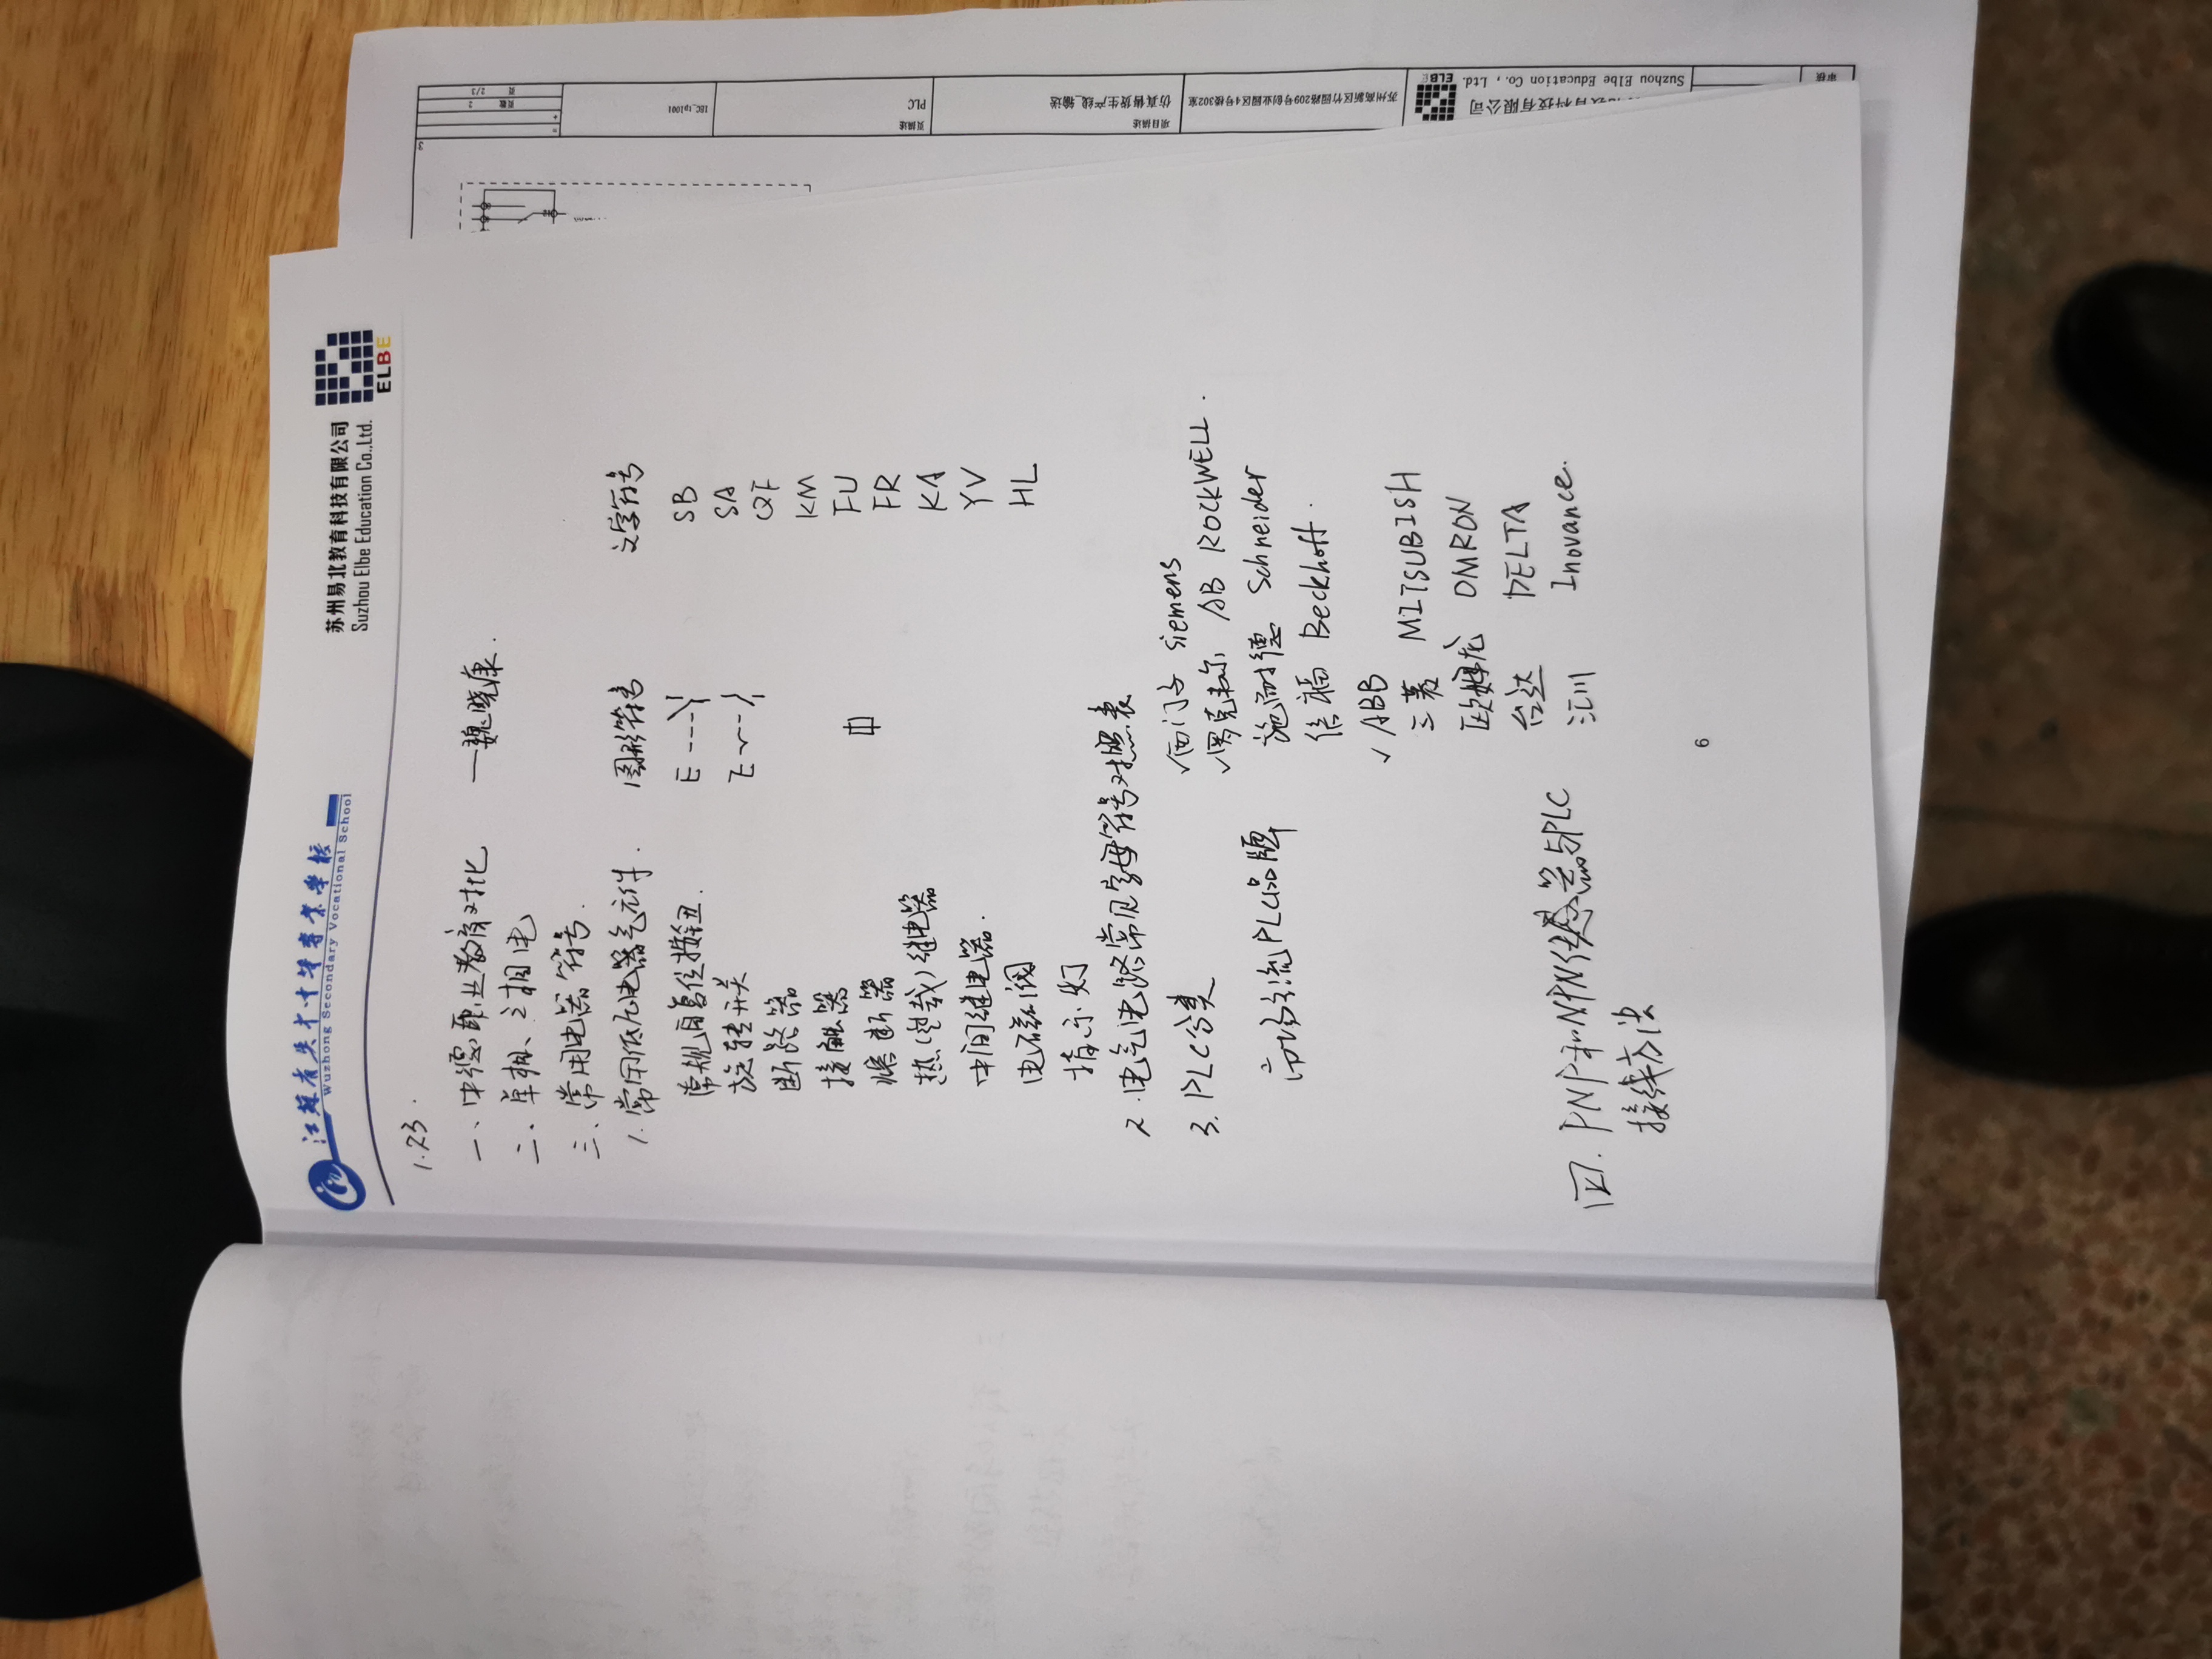 江苏省吴中中等专业学校
Wuzhong Secondary Vocational School
苏州易北教育科技有限公司
Suzhou Elbe Education Co.,Ltd.
ELBE
1.23.
一、中德职业教育对比 —魏晓康.
二、单相、三相电
三、常用电器符号.
1.常用低压电器元件. 图形符号 文字符号
常规自复位按钮. SB
旋转开关 SA
断路器 QF
接触器 KM
熔断器 FU
热(过载)继电器 FR
中间继电器. KA
电磁阀 YV
指示灯 HL
2.电气电路常见字母符号对照表
3.PLC分类
市场主流PLC品牌
✓西门子 siemens
✓罗克韦尔 AB ROCKWELL.
施耐德 Schneider
倍福 Beckhoff.
✓ABB
三菱 MITSUBISH
欧姆龙 OMRON
台达 DELTA
汇川 Inovance.
四.PNP和NPN传感器与PLC
接线方法
6
审核
教育科技有限公司
Suzhou Elbe Education Co., Ltd.
ELBE
苏州高新区竹园路209号创业园区4号楼302室
项目描述
仿真钻货生产线_输送
页描述
PLC
IEC_tpl001
=
+
页数 2
页 2/3
3